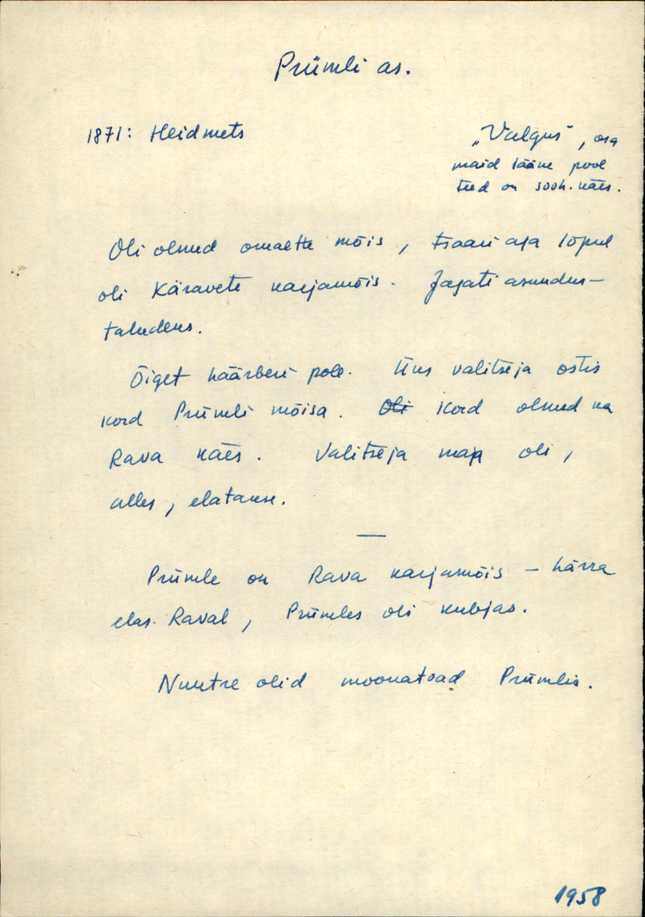 Prümli as.
1871: Heidmets
„Valgus", osa
maid lääne pool
teed on sooh. käes.
Oli olnud omaette mõis, tsaari aja lõpul
oli Käravete karjamõis. Jagati asundus-
taludeks.
Õiget häärberi pole. Üks valitseja ostis
kord Prümli mõisa. Oli Kord olnud ka
Rava käes. Valitseja maja oli,
alles, elatakse.
—
Prümle on Rava karjamõis – härra
elas Raval, Prümles oli kubjas.
Nuutre olid moonatoad Prümlis.
1958